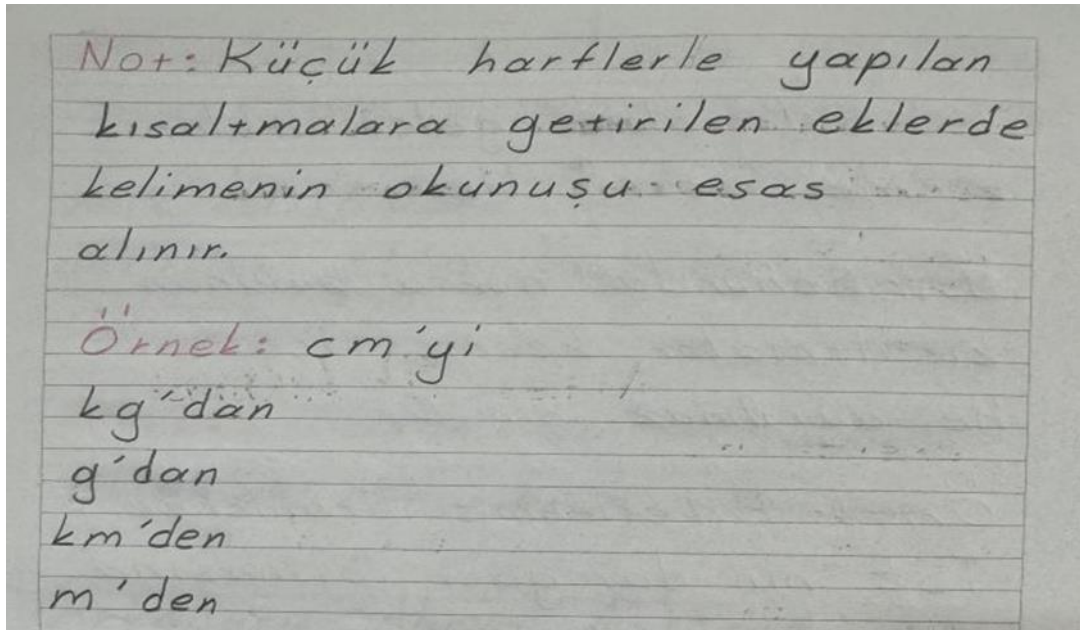 Not: Küçük harflerle yapılan
kısaltmalara getirilen eklerde
kelimenin okunuşu esas
alınır.
Örnek: cm'yi
kg'dan
g'dan
km'den
m'den